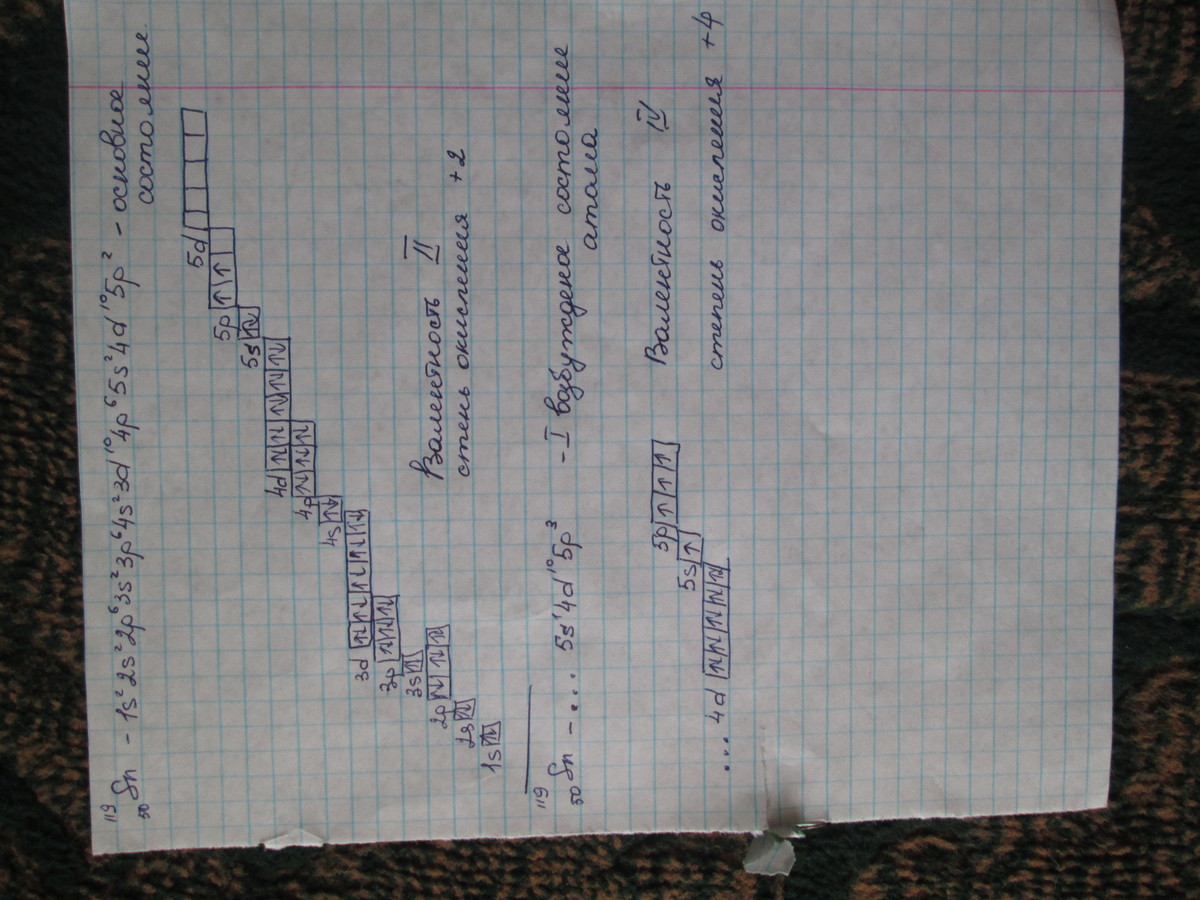 ¹¹⁹₅₀Sn - 1s² 2s² 2p⁶ 3s² 3p⁶ 4s² 3d¹⁰ 4p⁶ 5s² 4d¹⁰ 5p² - основное
состояние
5d
5p ↑ ↑
5s ↑↓
4d ↑↓ ↑↓ ↑↓ ↑↓ ↑↓
4p ↑↓ ↑↓ ↑↓
4s ↑↓
3d ↑↓ ↑↓ ↑↓ ↑↓ ↑↓
3p ↑↓ ↑↓ ↑↓
3s ↑↓
2p ↑↓ ↑↓ ↑↓
2s ↑↓
1s ↑↓
Валентность II
стень окисления +2
¹¹⁹₅₀Sn - ... 5s¹ 4d¹⁰ 5p³ - I возбужденое состояние
атома
5p ↑ ↑ ↑
5s ↑
... 4d ↑↓ ↑↓ ↑↓ ↑↓ ↑↓
Валентность IV
степень окисления +4